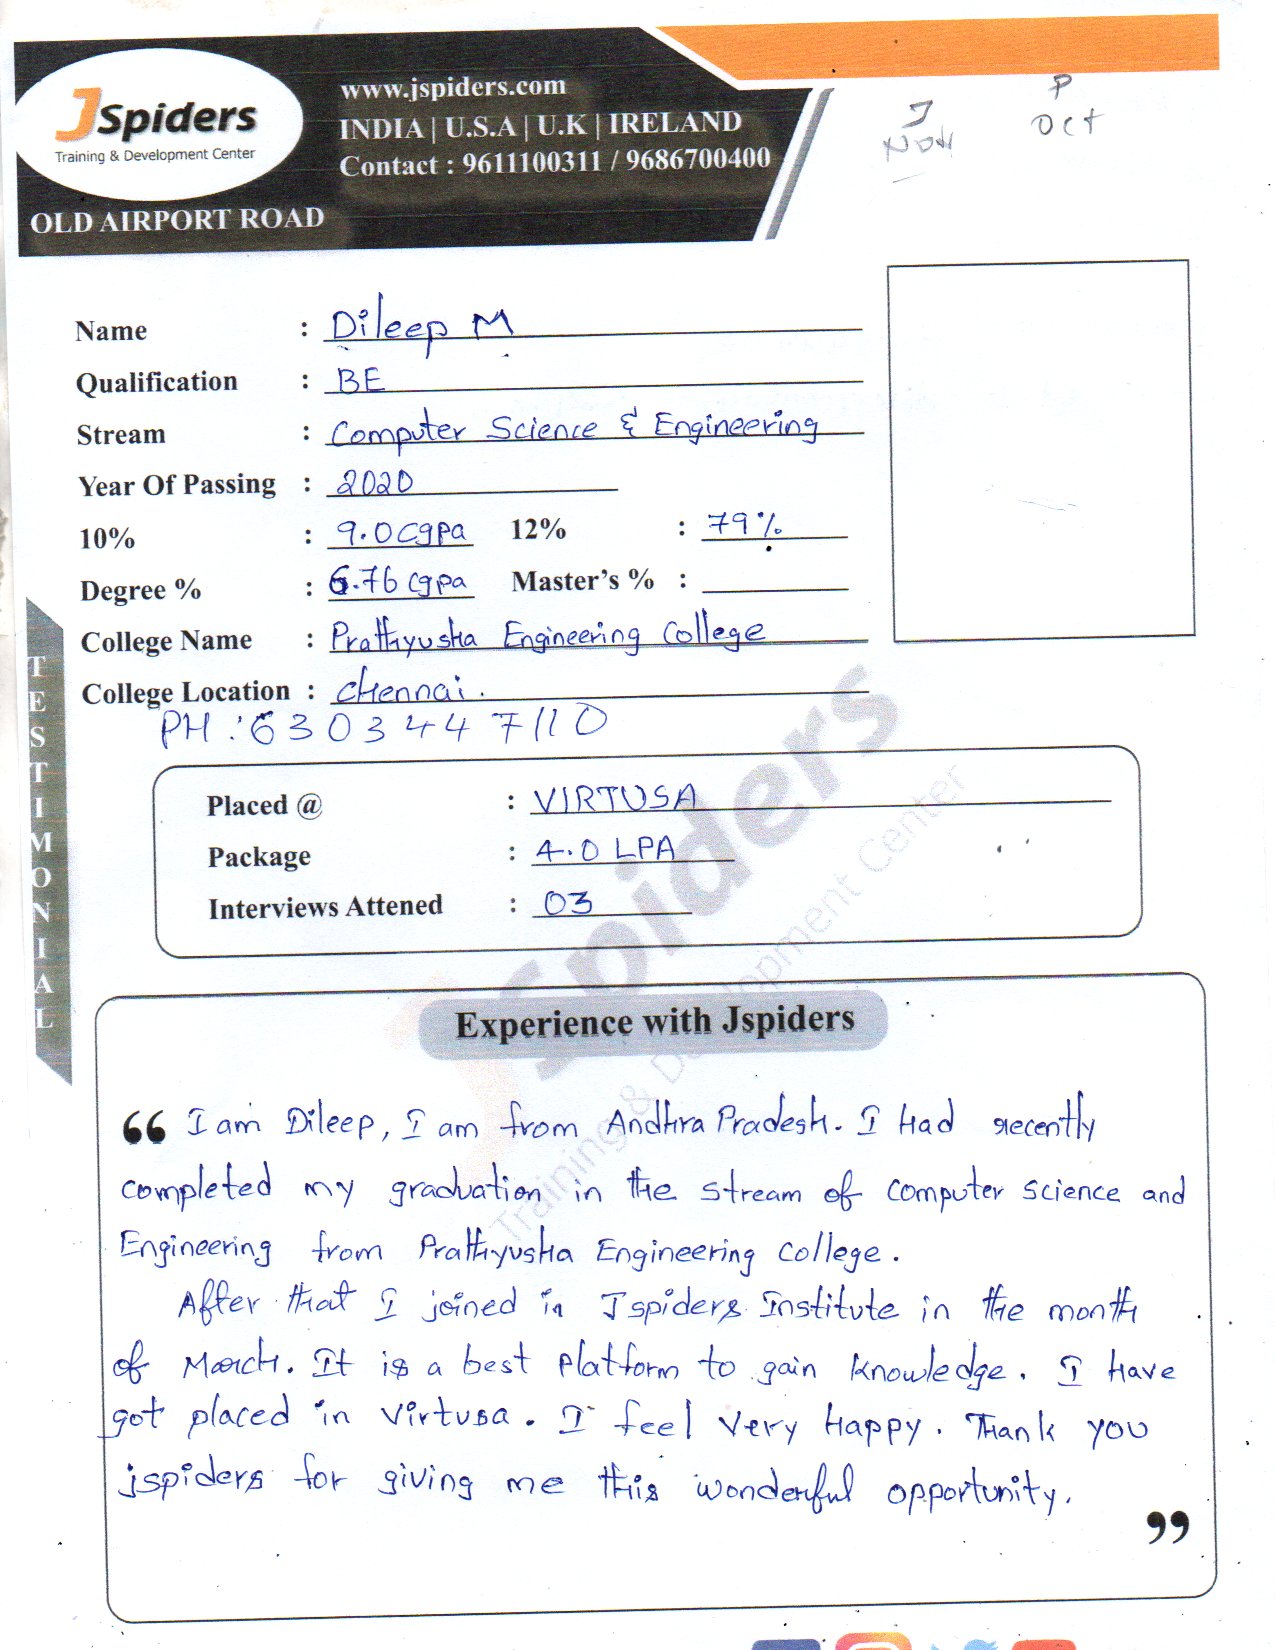 JSpiders
Training & Development Center
OLD AIRPORT ROAD
www.jspiders.com
INDIA | U.S.A | U.K | IRELAND
Contact : 9611100311 / 9686700400
J
Nov
P
Oct
Name : Dileep M
Qualification : BE
Stream : Computer Science & Engineering
Year Of Passing : 2020
10% : 9.0cgpa 12% : 79%
Degree % : 6.76 cgpa Master's % :
College Name : Prathyusha Engineering College
College Location : Chennai.
PH : 6303447110
TESTIMONIAL
Placed @ : VIRTUSA
Package : 4.0 LPA
Interviews Attened : 03
Experience with Jspiders
“ I am Dileep, I am from Andhra Pradesh. I Had recently
completed my graduation in the stream of computer science and
Engineering from Prathyusha Engineering College.
After that I joined in Jspiders Institute in the month
of March. It is a best platform to gain knowledge. I have
got placed in Virtusa. I feel very happy. Thank you
jspiders for giving me this wonderful opportunity.
”
Spiders
Training & Development Center